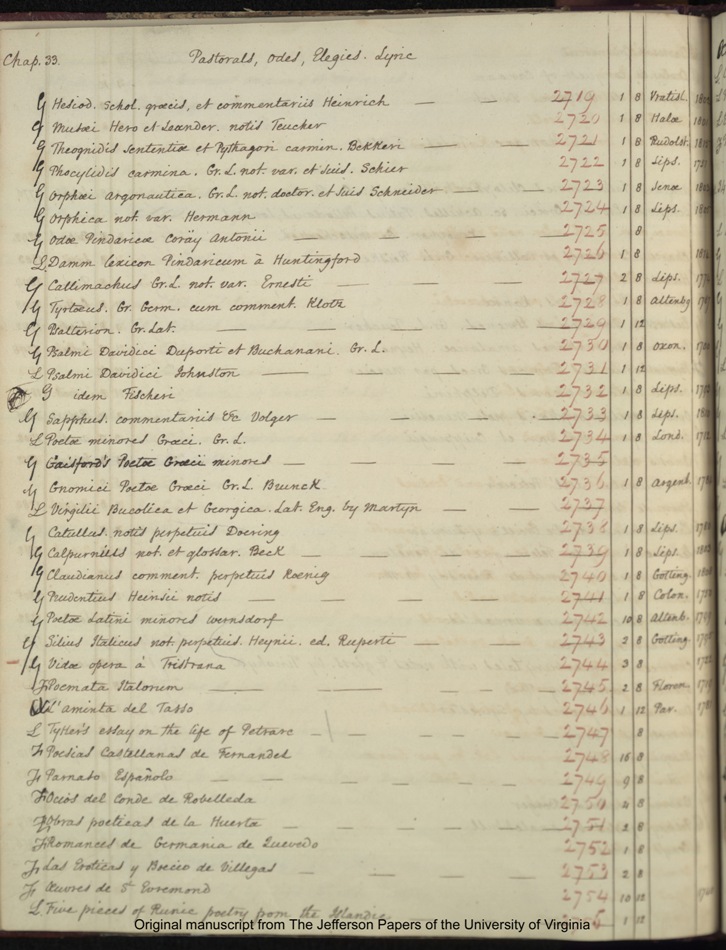 Chap. 33. Pastorals, Odes, Elegies. Lyric
G Hesiod. Schol. græcis, et commentariis Heinrich — — 2719 1 8 Vratisl.
G Musæi Hero et Leander. notis Teucher 2720 1 8 Halæ
G Theognidis sententiæ et Pythagori carmin. Bekkeri — — 2721 1 8 Rudolst.
G Phocylidis carmina. Gr. L. not. var. et suis. Schier 2722 1 8 Lips.
G Orphæi argonautica. Gr. L. not. doctor. et suis Schneider — 2723 1 8 Jenæ
G Orphica not. var. Hermann 2724 1 8 Lips.
G Odæ Pindaricæ Coräy Antonii — — — 2725 8
L. Damm Lexicon Pindaricum à Huntingford 2726 1 8
G Callimachus Gr. L. not. var. Ernesti — — — 2727 2 8 Lips.
G Tyrtæus. Gr. Germ. cum comment. Klotz 2728 1 8 Altenbg
G Walterion. Gr. Lat. — — — — 2729 1 12
G Psalmi Davidici Duporti et Buchanani. Gr. L. 2730 1 8 Oxon.
L Psalmi Davidici Johnston — — — — 2731 1 12
G idem Fischeri 2732 1 8 Lips.
G Sapphus. commentariis &c Volger — — — 2733 1 8 Lips.
L Poetæ minores Græci. Gr. L. 2734 1 8 Lond.
G Gaisford's Poetæ Græci minores — — — — 2735
G Gnomici Poetæ Græci Gr. L. Brunck 2736 1 8 Argent.
L Virgilii Bucolica et Georgica. Lat. Eng. by Martyn — — 2737
G Catullus. notis perpetuis Doering 2738 1 8 Lips.
G Calpurnius not. et glossar. Beck — — — 2739 1 8 Lips.
G Claudianus comment. perpetuis Koenig 2740 1 8 Gotting.
G Prudentius Heinsii notis — — — — 2741 1 8 Colon.
G Poetæ Latini minores wernsdorf 2742 10 8 Altenb.
G Silius Italicus not. perpetuis. Heynii. ed. Ruperti — — 2743 2 8 Gotting
G Vidæ opera à Tristrana 2744 3 8
Poemata Italorum — — — — 2745 2 8 Floren.
L'aminta del Tasso 2746 1 12 Par.
L Tytler's essay on the life of Petrarc — — — — 2747 8
Poesias Castellanas de Fernandes 2748 16 8
Parnaso Español — — — — 2749 9 8
Ocios del Conde de Rebolledo 2750 4 8
Obras poeticas de la Huerta — — — — 2751 2 8
Romances de Germania de Quevedo 2752 1 8
Las Eroticas y Boecio de Villegas — — — — 2753 2 8
Œuvres de St Evremond 2754 10 12
L. Five pieces of Runic poetry from the Islandic 1 12
Original manuscript from The Jefferson Papers of the University of Virginia